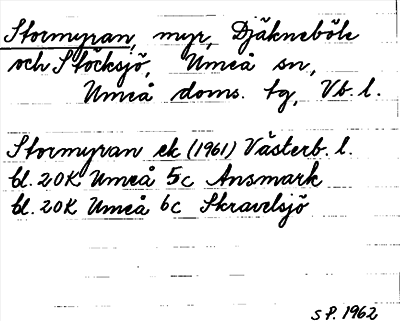 Stormyran, myr, Djäkneböle
och Stöcksjö, Umeå sn,
Umeå doms. tg, Vb. l.
Stormyran ek (1961) Västerb. l.
bl. 20K Umeå 5c Ansmark
bl. 20K Umeå 6c Skravelsjö
S P. 1962